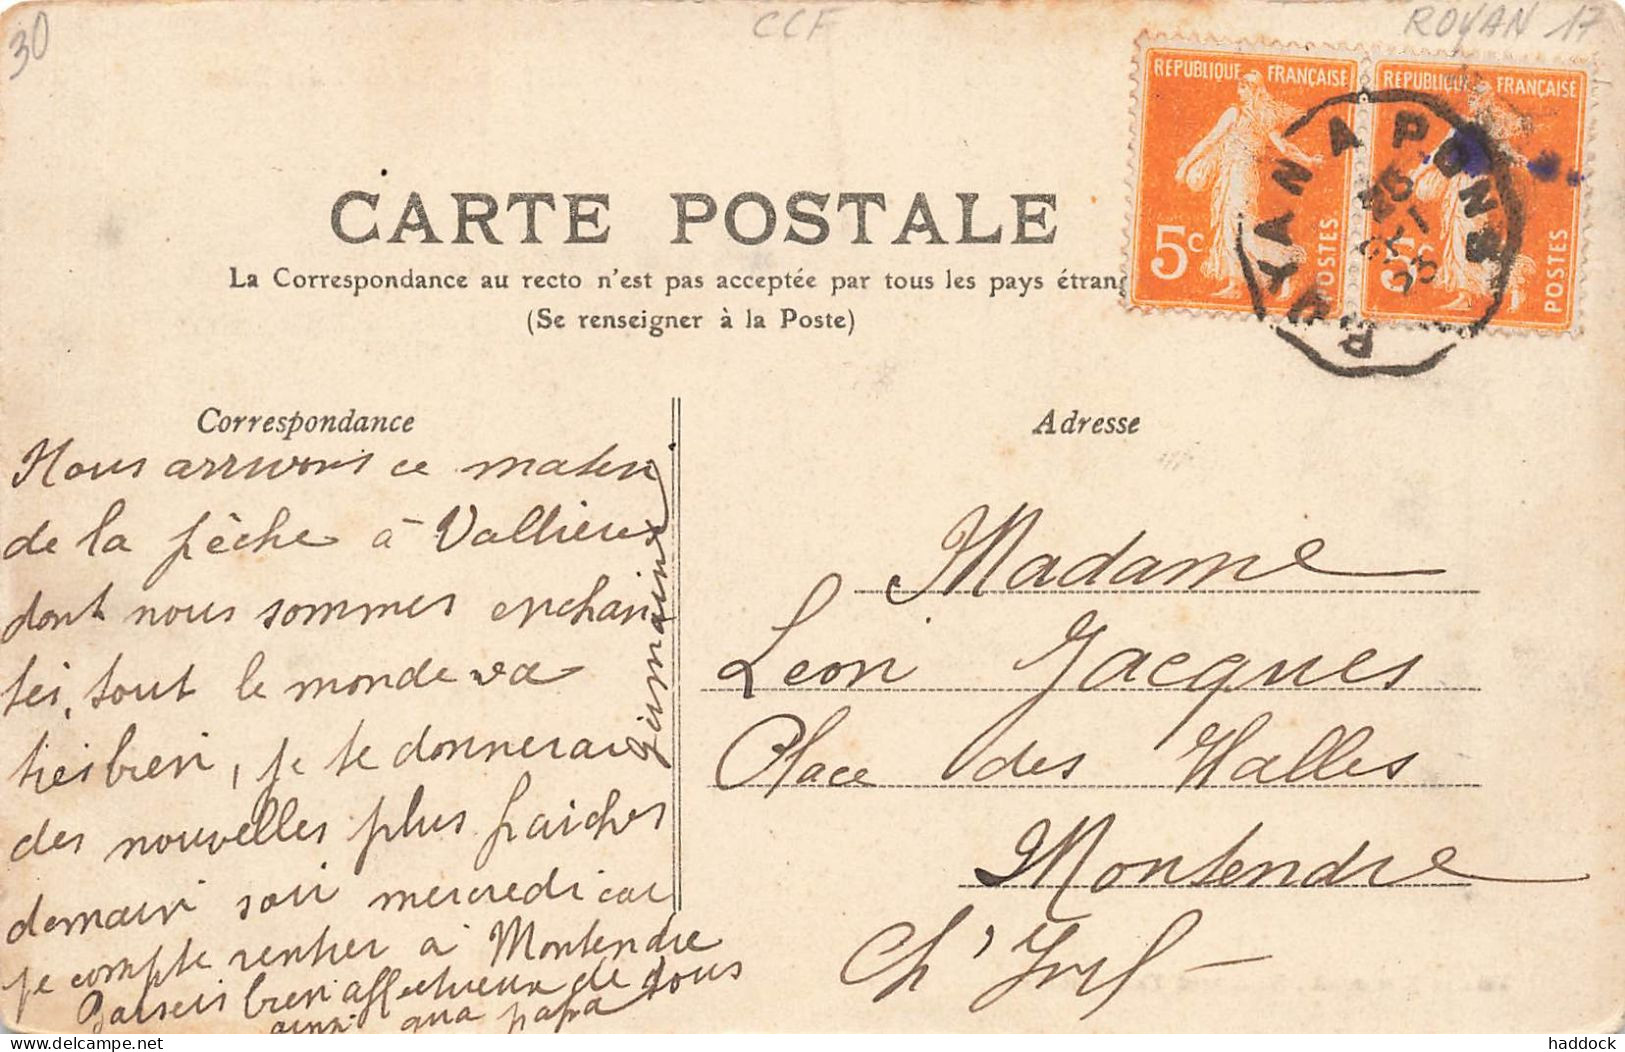 30
CCF
ROYAN 17
REPUBLIQUE FRANÇAISE
5c
POSTES
REPUBLIQUE FRANÇAISE
5c
POSTES
ROYAN A PONS
CARTE POSTALE
La Correspondance au recto n'est pas acceptée par tous les pays étrang
(Se renseigner à la Poste)
Correspondance
Nous arrivons ce matin
de la pêche à Vallieres
dont nous sommes enchan
tés, tout le monde va
très bien, je te donnerai
des nouvelles plus fraiches
demain soir mercredi car
je compte rentrer à Montendre
Baisers bien affectueux de tous
ainsi qua papa
Germaine
Adresse
Madame
Leon Jacques
Place des Halles
Montendre
Ch' Infre
haddock
©delcampe.net